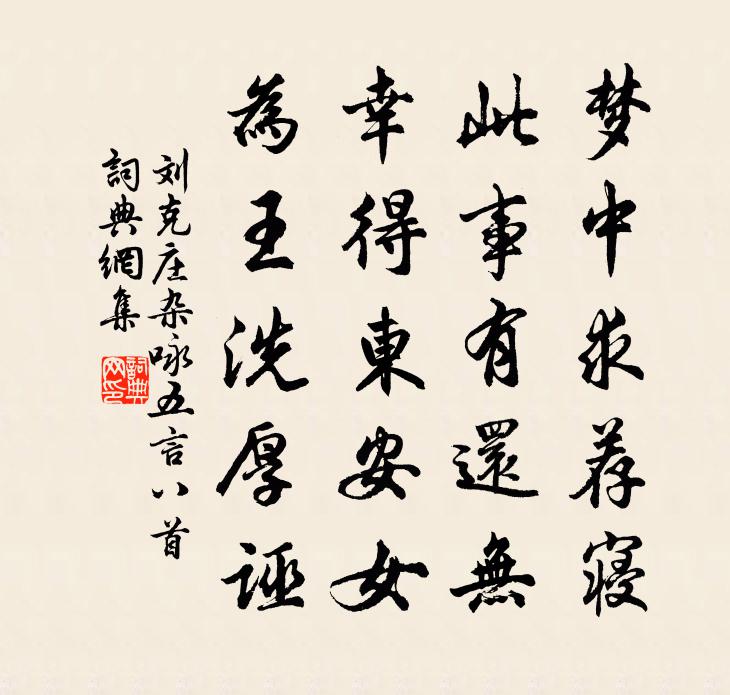 梦中求荐寝
此事有還無
幸得東安女
為王洗厚誣
刘克庄杂咏五言八首
詞典網集
詞典網印